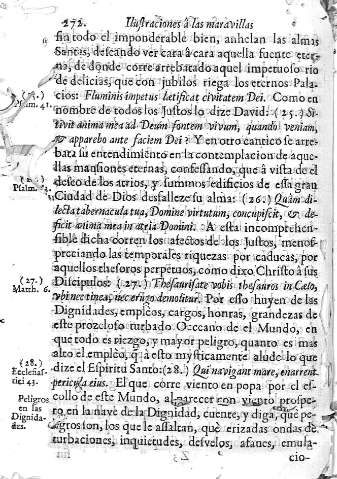 272. Ilustraciones à las maravillas
sin todo el imponderable bien, anhelan las almas
Santas, deseando ver cara à cara aquella fuente eter-
na, de donde corre arrebatado aquel impetuoso rio
de delicias, que con jubilos riega los eternos Pala-
cios: Fluminis impetus letificat civitatem Dei. Como en
nombre de todos los Justos lo dize David: (25.) Si-
tivit anima mea ad Deum fontem vivum, quando veniam,
& apparebo ante faciem Dei? Y en otro cantico se arre-
bata su entendimiento en la contemplacion de aque-
llas mansiones eternas, confessando, que à vista de el
deseo de los atrios, y sumptuosos edificios de essa gran
Ciudad de Dios desfalleze su alma: (26.) Quàm di-
lecta tabernacula tua, Domine virtutum, concupiscit, & de-
ficit anima mea in atria Domini. A esta incomprehen-
sible dicha corren los afectos de los Justos, menos-
preciando las temporales riquezas por caducas, por
aquellos thesoros perpetuos, como dixo Christo à sus
Discipulos: (27.) Thesaurisate vobis thesauros in Cælo,
ubi nec tinea, nec erugo demolitur. Por esso huyen de las
Dignidades, emplèos, cargos, honras, grandezas de
este prozeloso turbado Occeano de el Mundo, en
que todo es riezgo, y mayor peligro, quanto es mas
alto el emplèo, q̃ à esto mysticamente alude lo que
dize el Espiritu Santo: (28.) Qui navigant mare, enarrent
pericula eius. El que corre viento en popa por el es-
collo de este Mundo, al parecer con viento prospe-
ro en la nave de la Dignidad, cuente, y diga, què pe-
ligros son, los que le assaltan, què erizadas ondas de
turbaciones, inquietudes, desvelos, afanes, emula-
cio-
Psalm. 41.
Psalm.
(27.)
Matth. 6.
(28.)
Ecclesias-
tici 43.
Peligros
en las
Dignida-
des.